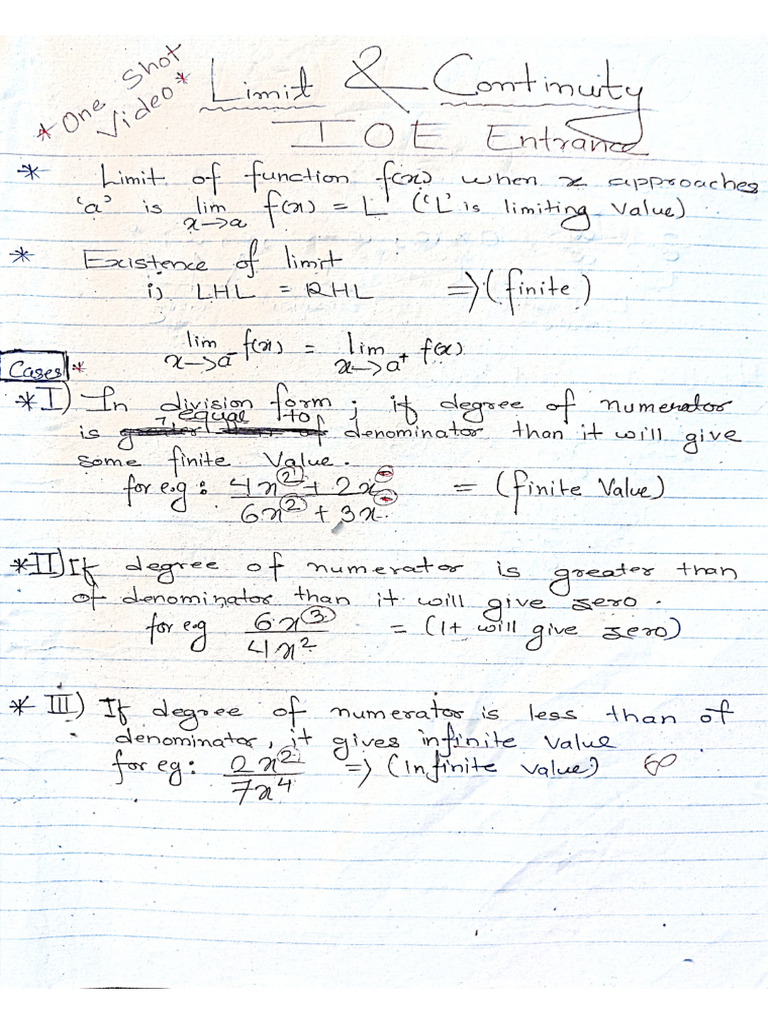 *One Shot Video*
Limit & Continuity
IOE Entrance
* Limit of function f(x) when x approaches
'a' is lim x→a f(x) = L ('L' is limiting value)
* Existence of limit
i) LHL = RHL ⇒ (finite)
lim x→a⁻ f(x) = lim x→a⁺ f(x)
Cases *
* I) In division form; if degree of numerator
is equal to denominator than it will give
some finite value.
for e.g : 4x² + 2x / 6x² + 3x = (finite value)
* II) If degree of numerator is greater than
of denominator than it will give zero.
for e.g 6x³ / 4x² = (It will give zero)
* III) If degree of numerator is less than of
denominator, it gives infinite value
for eg: 2x² / 7x⁴ ⇒ (infinite value) ∞